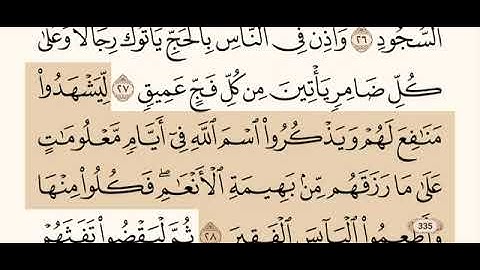 السُّجُودِ ٢٦ وَأَذِّن فِي النَّاسِ بِالْحَجِّ يَأْتُوكَ رِجَالًا وَعَلَىٰ
كُلِّ ضَامِرٍ يَأْتِينَ مِن كُلِّ فَجٍّ عَمِيقٍ ٢٧ لِّيَشْهَدُوا۟
مَنَافِعَ لَهُمْ وَيَذْكُرُوا۟ اسْمَ اللَّهِ فِىٓ أَيَّامٍ مَّعْلُومَاتٍ
عَلَىٰ مَا رَزَقَهُم مِّنۢ بَهِيمَةِ الْأَنْعَامِ ۖ فَكُلُوا۟ مِنْهَا
وَأَطْعِمُوا۟ الْبَآئِسَ الْفَقِيرَ ٢٨ ثُمَّ لْيَقْضُوا۟ تَفَثَهُمْ
335